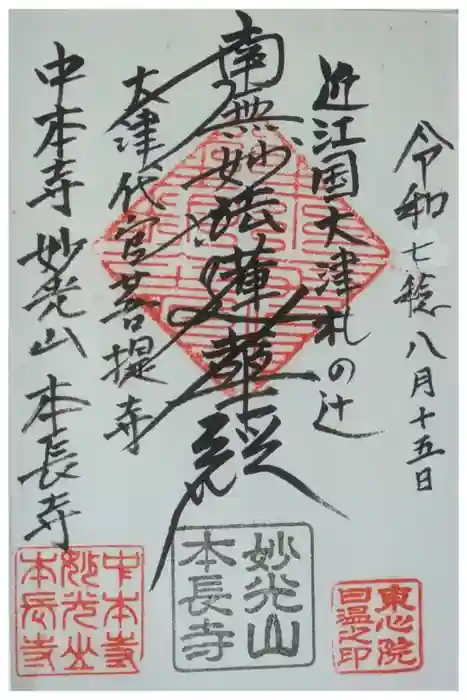 令和七穐八月十五日
近江国大津札の辻
南無妙法蓮華経
大津代官菩提寺
中本寺 妙光山 本長寺
東心院
日温之印
妙光山
本長寺
中本寺
妙光山
本長寺